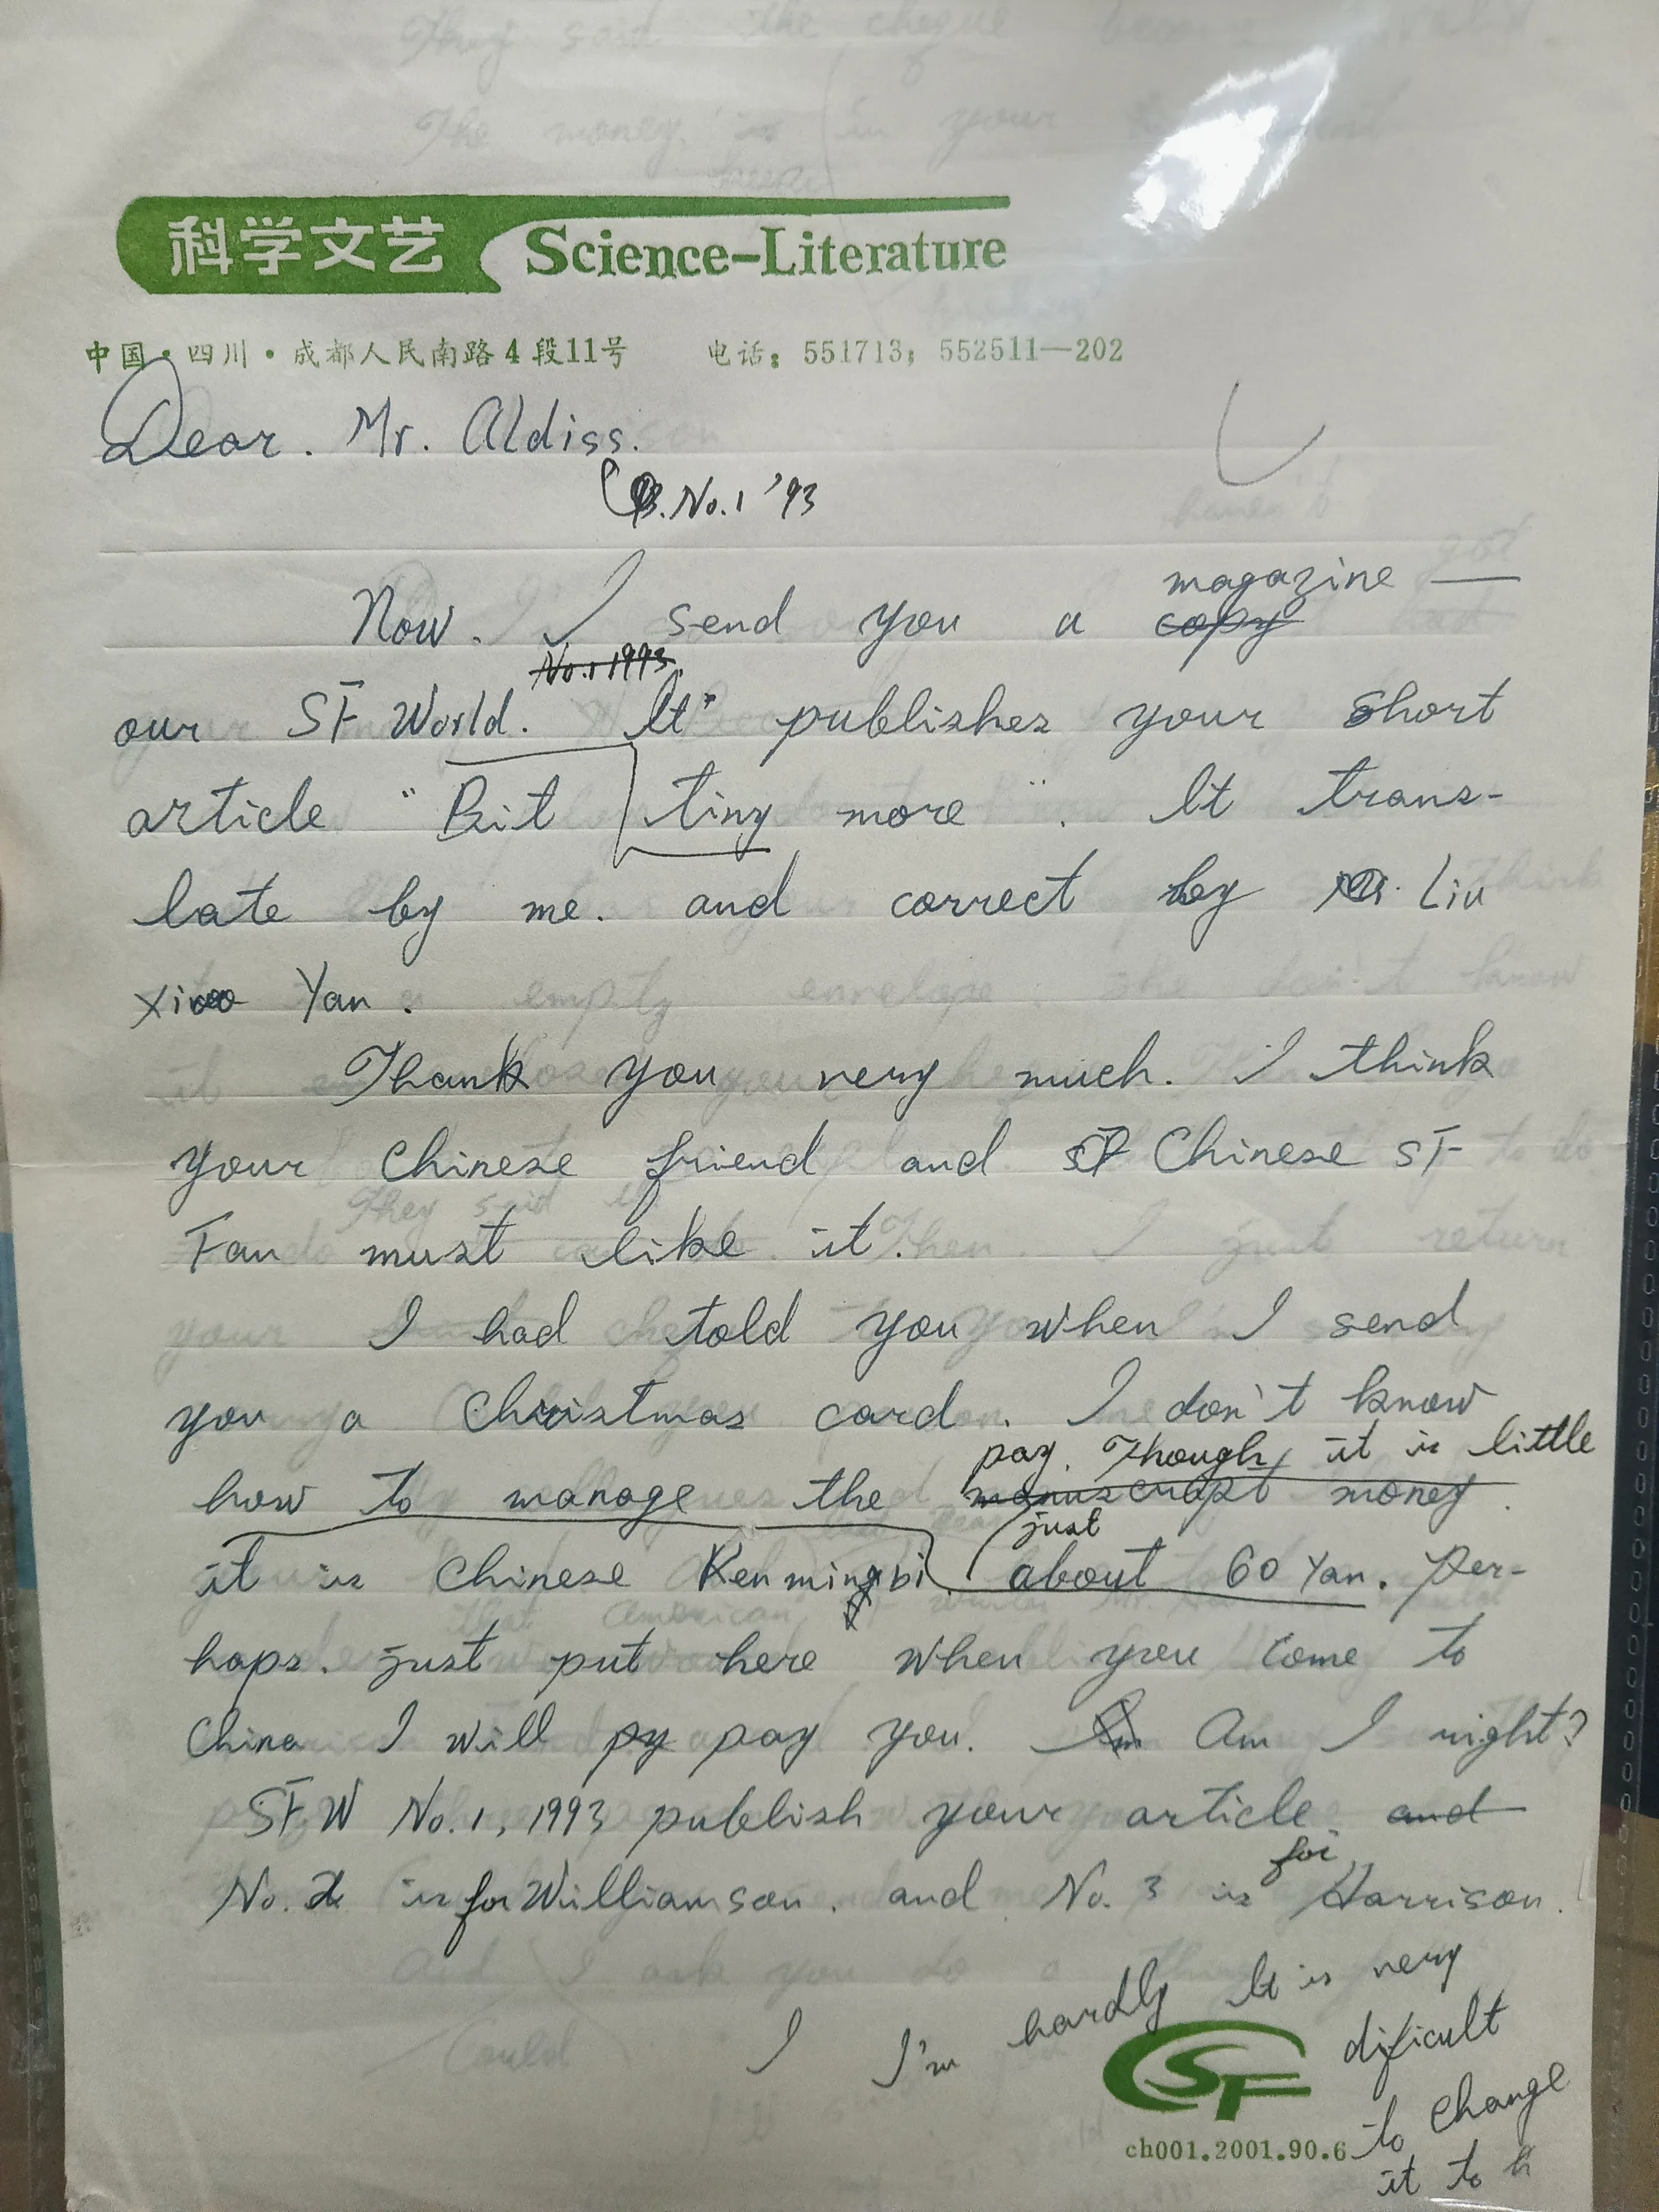 科学文艺 Science-Literature
中国·四川·成都人民南路4段11号 电话：551713；552511—202
Dear. Mr. Aldiss.
No.1 '93
magazine
Now. I send you a copy
No.1 1993
our SF World. It publishes your short
article "Bit tiny more". It trans-
late by me. and correct by Liu
Xiao Yan.
Thank you very much. I think
your Chinese friend and SF Chinese SF
Fan must like it.
I had told you when I send
you a Christmas card. I don't know
pay. Though it is little
how to manage the manuscript money.
just
it is Chinese Renmingbi. about 60 Yan. Per-
haps. just put here when you come to
China I will py pay you. Am I right?
SFW No.1, 1993 publish your article. and
for
No. 2 is for Williamson. and No. 3 is Harrison.
I I'm hardly It is very
dificult
to change
it to
SF
ch001.2001.90.6